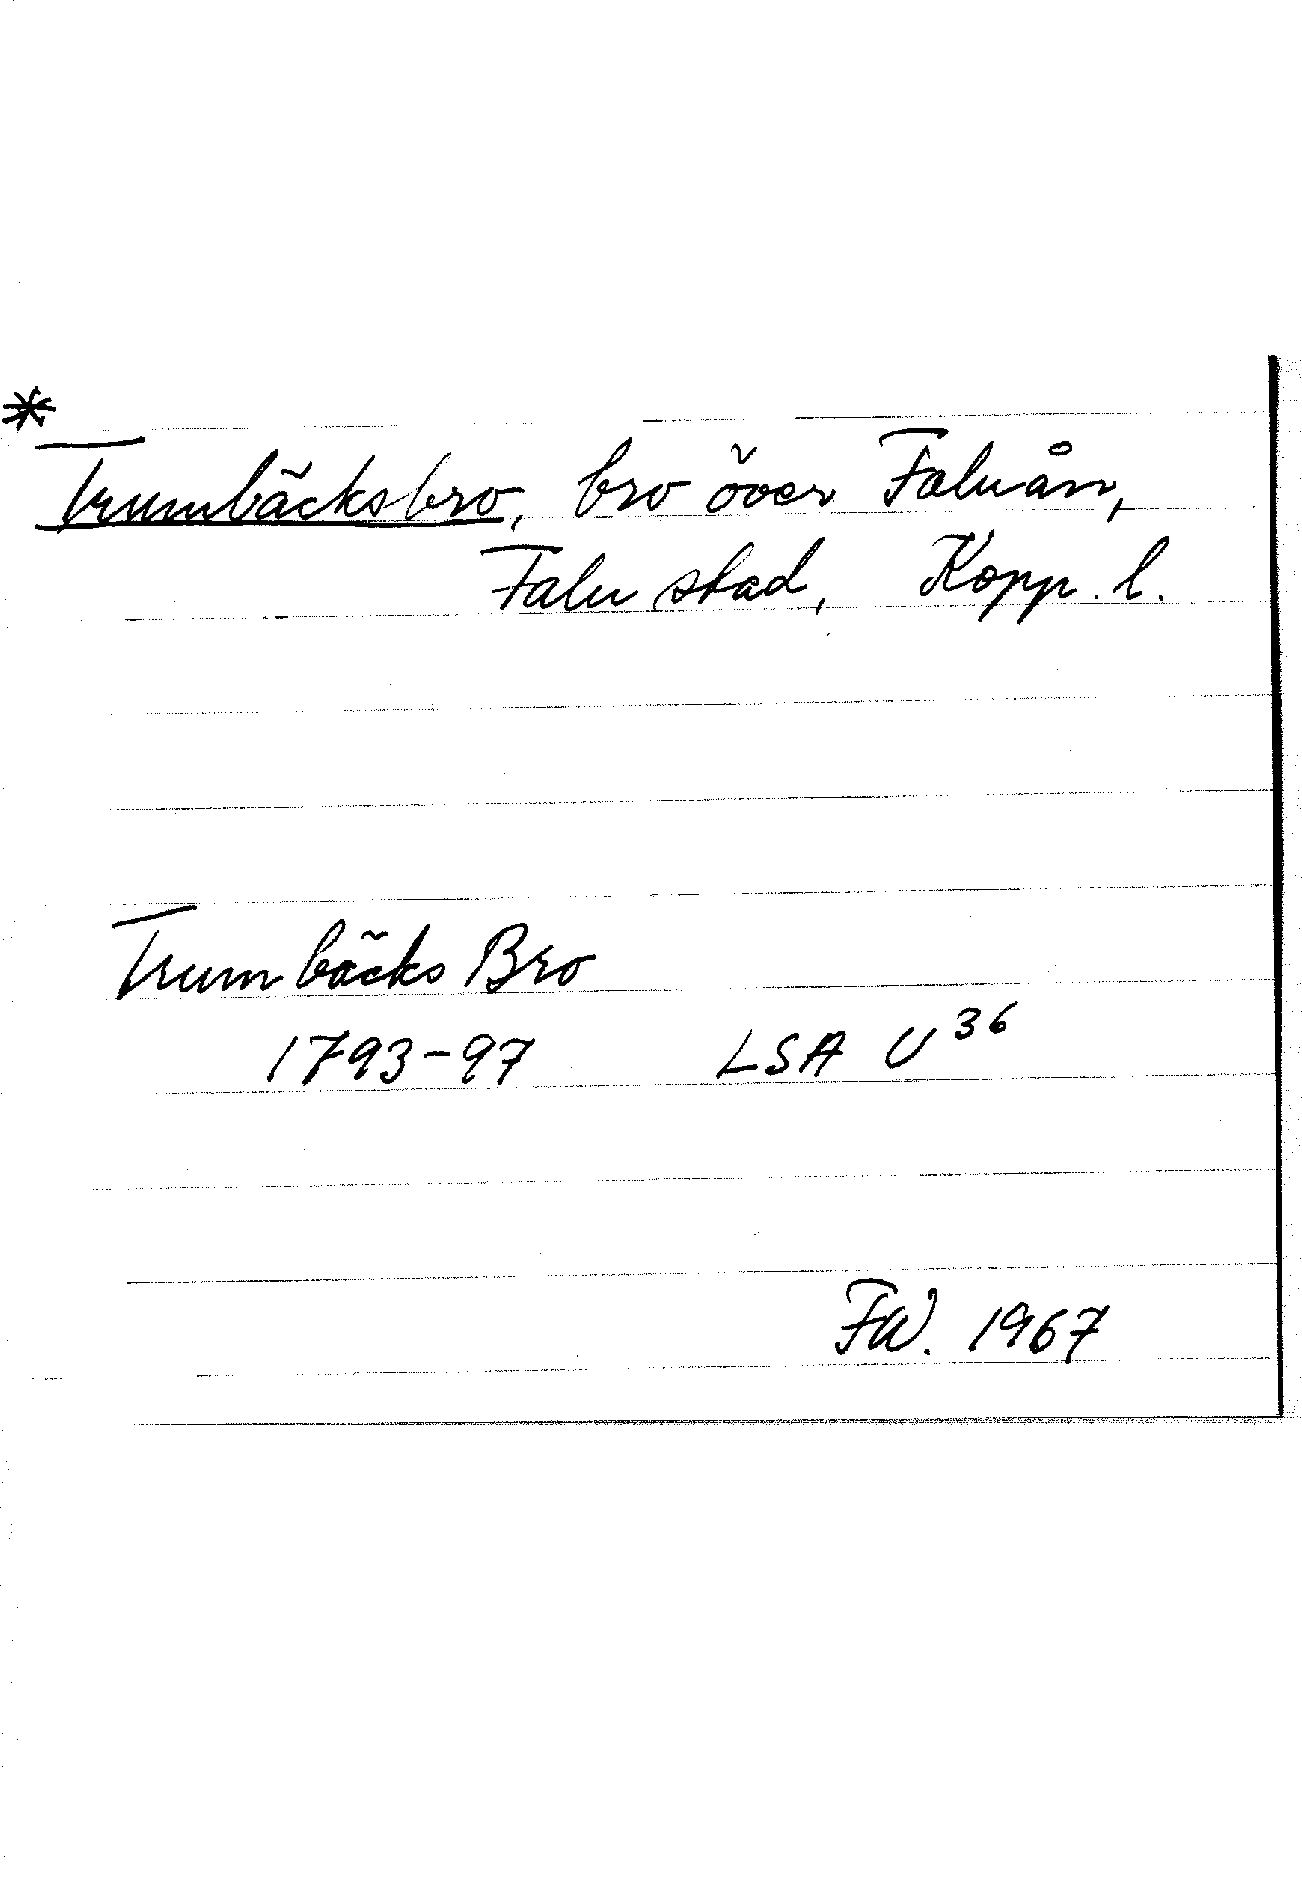 *
Trumbäcksbro, bro över Faluån,
Falu stad, Kopp. l.
Trumbäcks Bro
1793-97 LSA U 36
FW. 1967